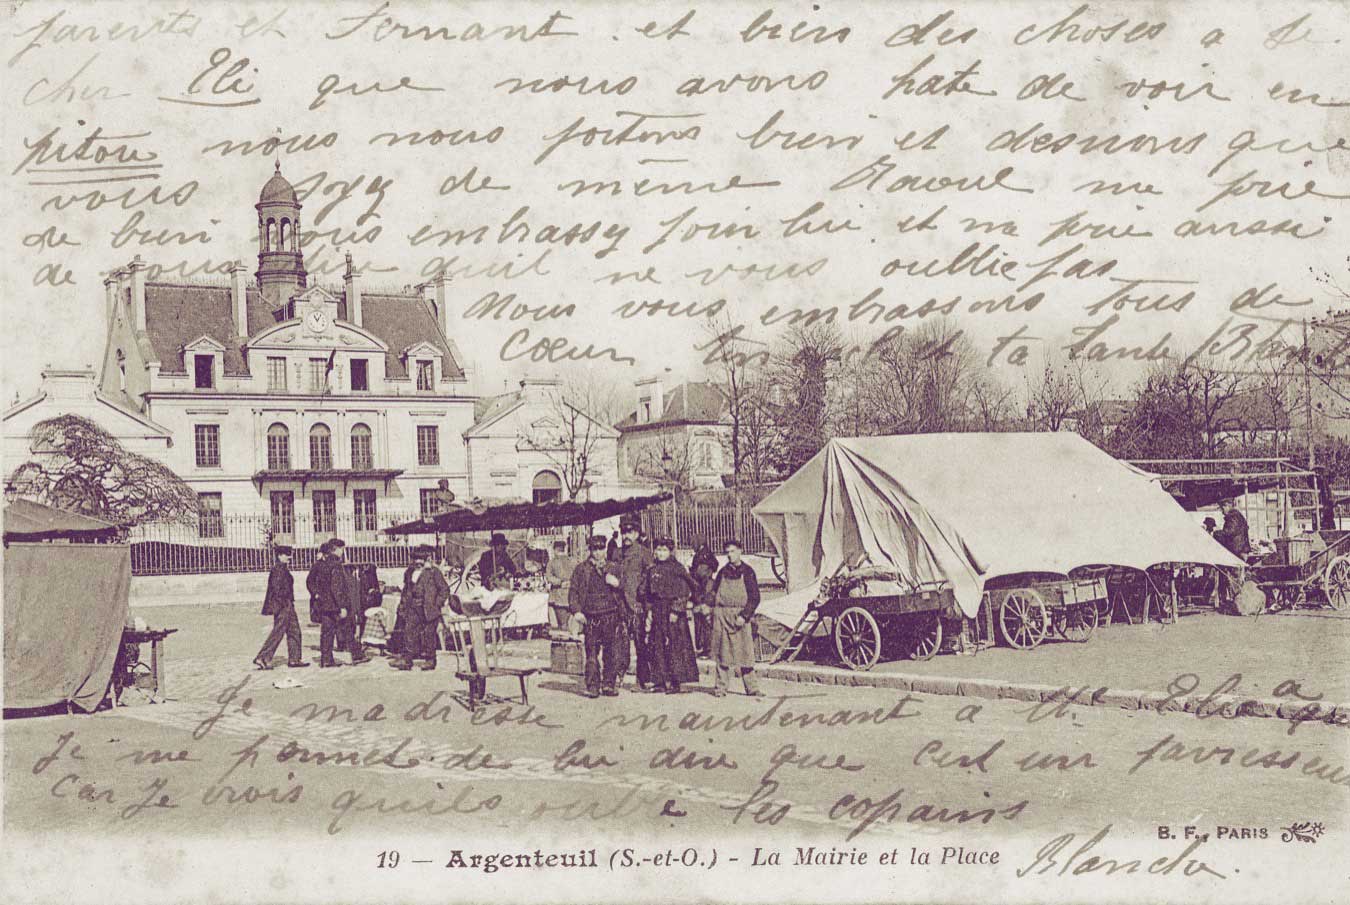 parents et Fernant. et bien des choses a le
cher Eli que nous avons hate de voir en
pitou nous nous portons bien et desirons que
vous soyez de même Raoul me prie
de bien vous embrassez pour lui et me prie aussi
de vous dire quil ne vous oublie pas
Nous vous embrassons tous de
Cœur et ta Tante Blanche
Je madresse maintenant a Mr Elie a qui
Je me permet de lui dire que cest un paresseux
Car Je crois quils les copains
Blanche.
B. F., PARIS
19 — Argenteuil (S.-et-O.) - La Mairie et la Place